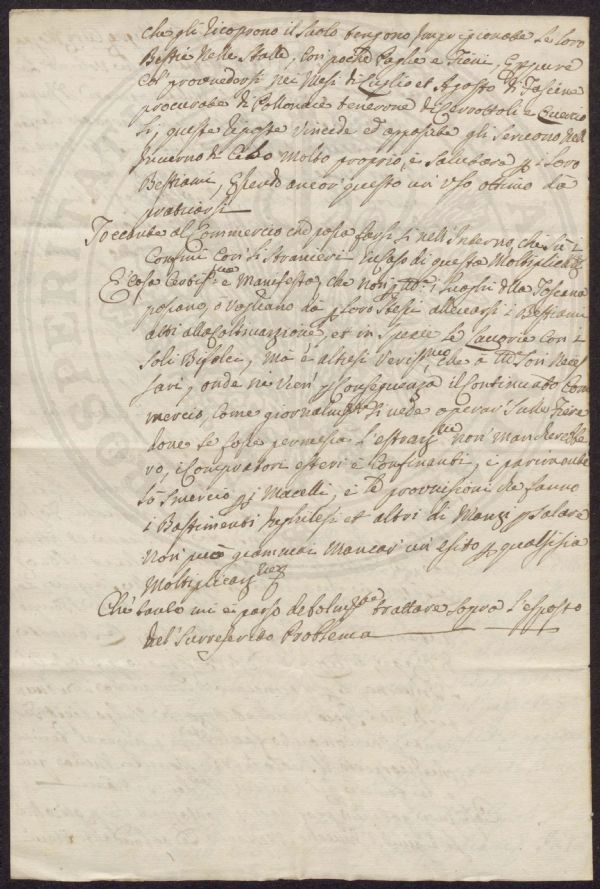 che gli ricoprono il suolo tengono Imprigionate Le loro
Bestie Nelle Stalle, con poche Paglie e Fieni, Eppure
col provvedersi nei Mesi di Luglio et Agosto di
procurate di Pollonaie tenerone di Cerrottoli e Quercio
li, queste riposte Vincide ed appassite gli servono nell
Inverno di Cibo Molto proprio, e Salubare p i Loro
Bestiami, Essendo ancor questo un' Uso ottimo da
praticarsi
Toccante al Commercio che possa farsi sì nell'Interno, che si i
Confini con li Stranieri in caso di questa Moltiplicaz:
E' Cosa Certiss:ma e Manifesta, che non tt:i i Luoghi della Toscana
possano, o vagliano da p loro stessi allevarsi i Bestiami
atti alla Coltivazione, et in specie Le Lavorie con i
soli Bifolci, Ma è altresì Veriss:mo, che a tt:i son Neces
sari, onde ne vien' p Conseguenza il Continuato Com
mercio, Come giornalm:te si vede operar' sulle Fiere
dove se fosse permessa l'estraz:ne non' Mancherebbe
ro, i Compratori esteri e Confinanti, e parimente
lo smercio p i Macelli, e le provvisioni che fanno
i Bastimenti Inghilesi et altri di Manzi p salare
Non può giammai Mancar' un' esito p qualsisia
Moltiplicaz:ne
Che tanto mi è parso debolm:te trattare sopra l'esposto
del' Surreferito Problema